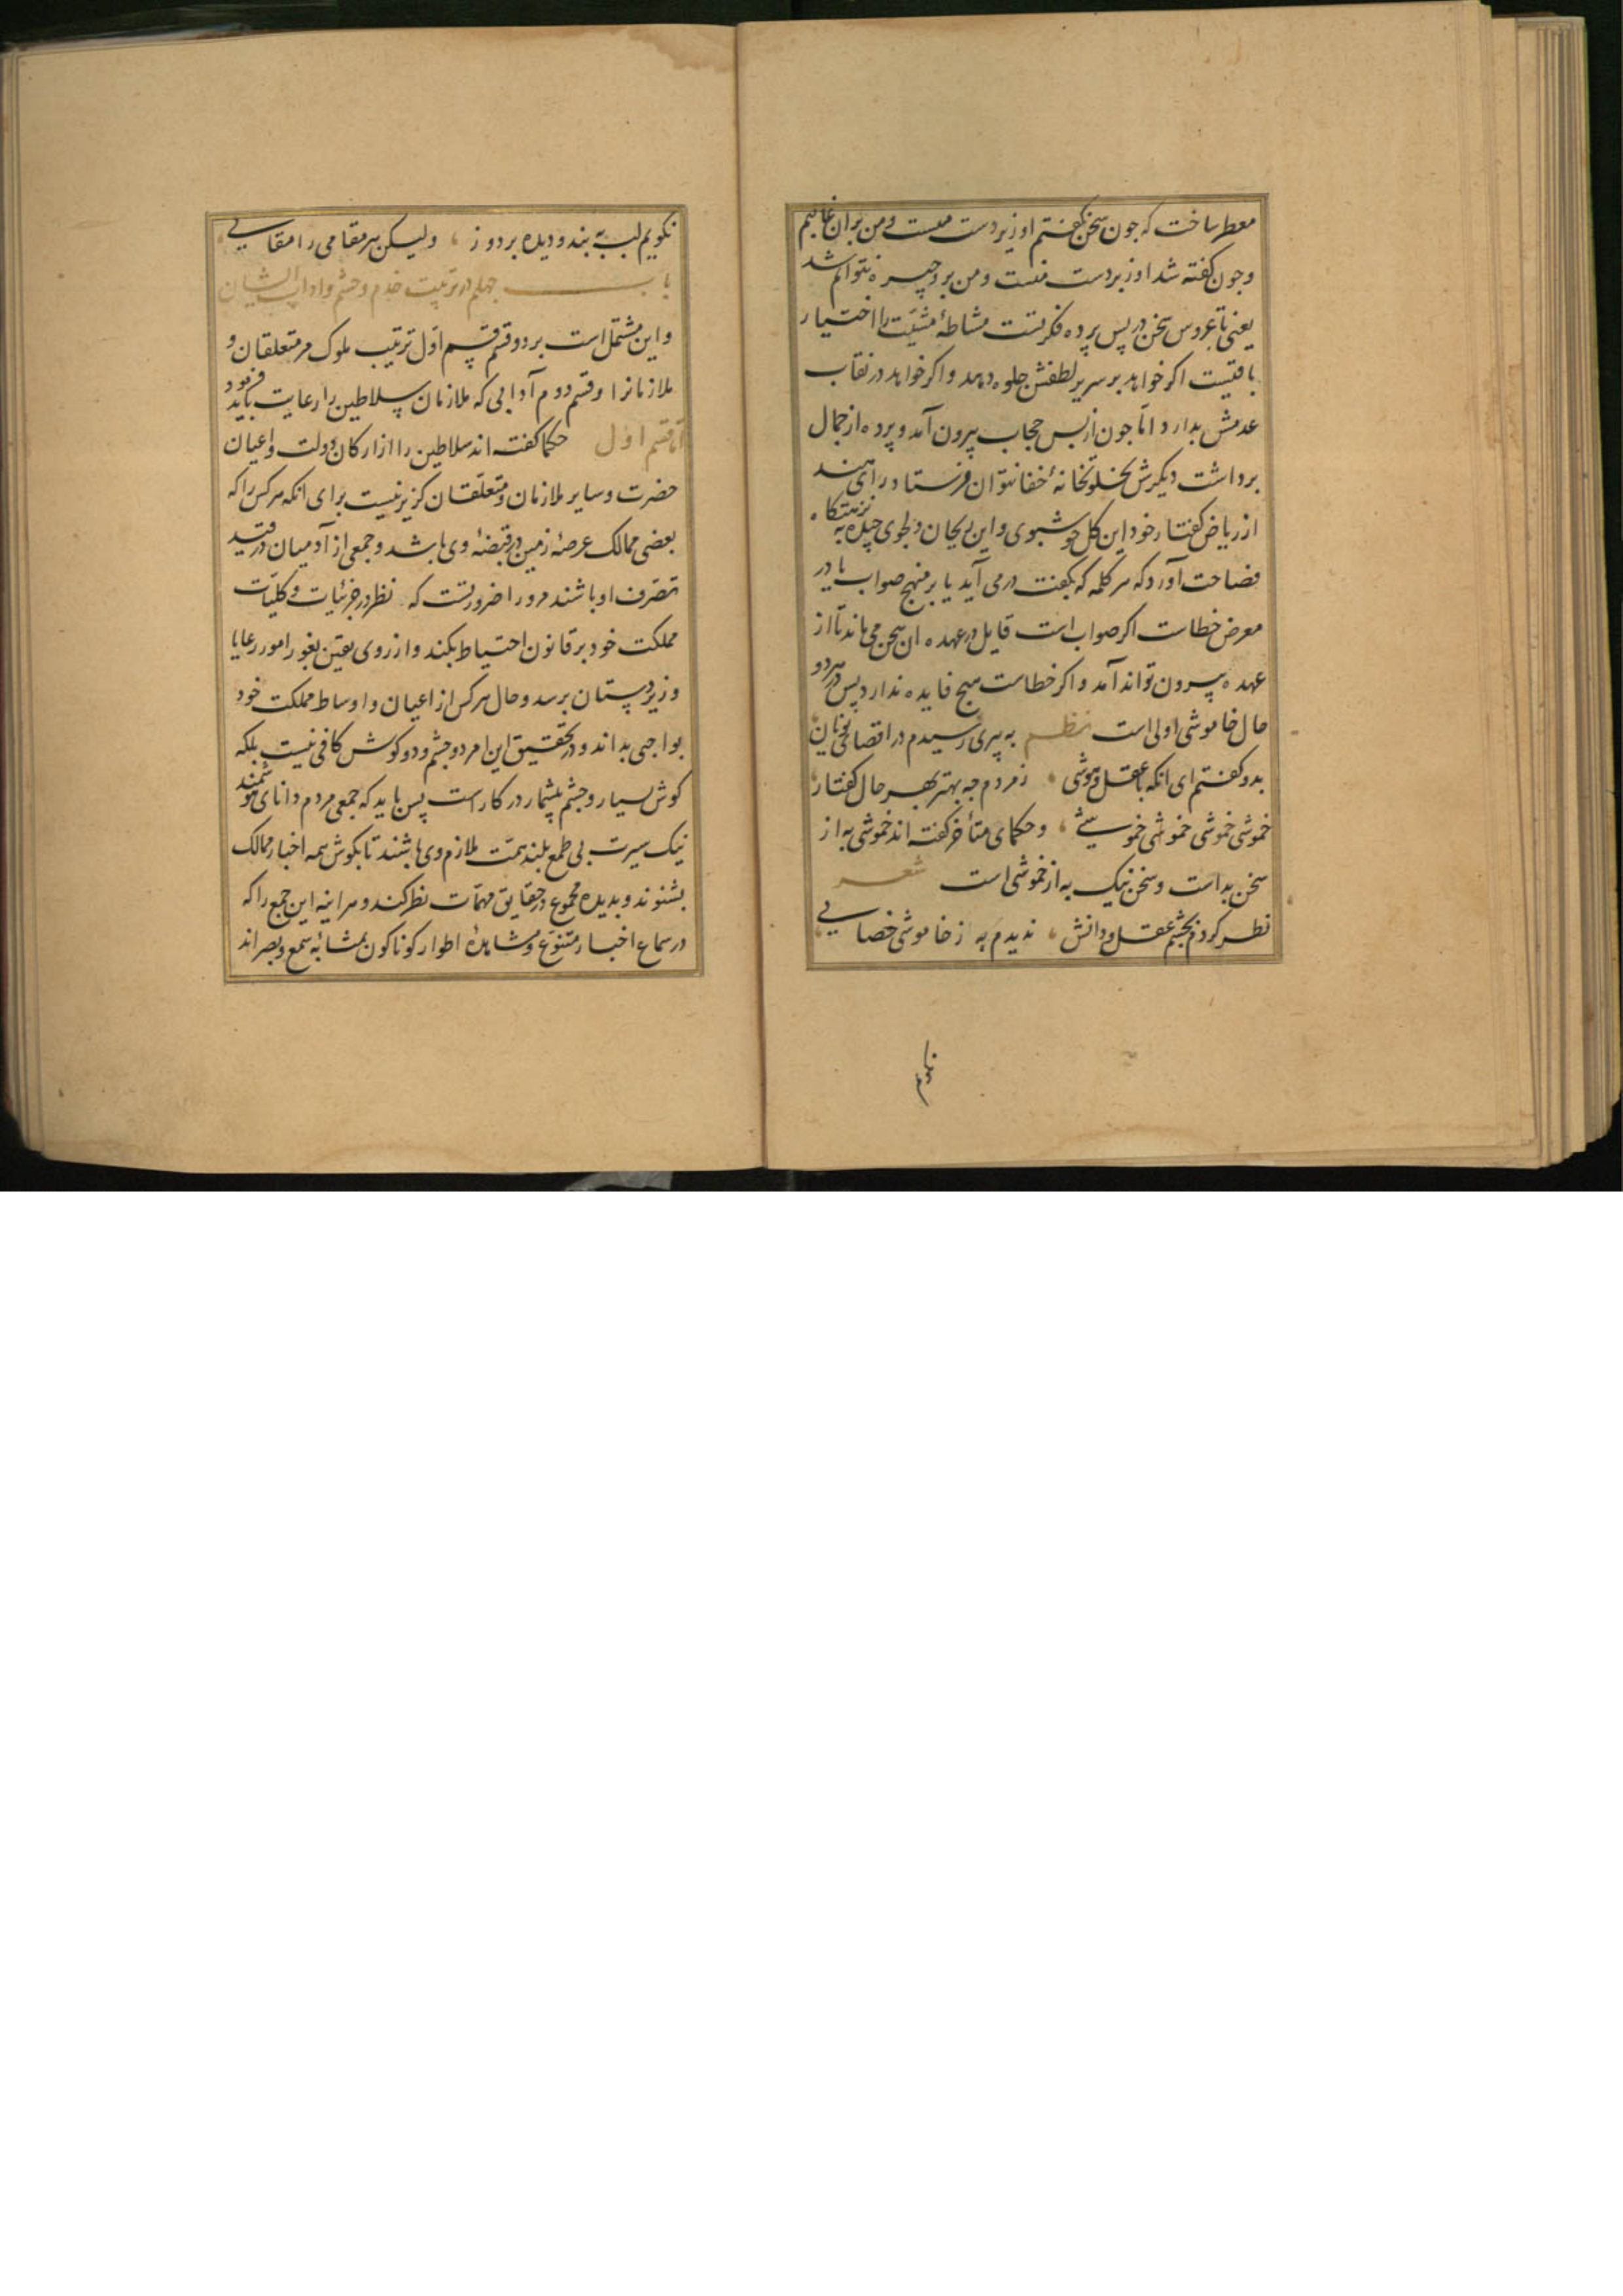 معطر ساخت که جون سخن نکفتم او زیردست منست و من بران غالبم
وجون کفته شد او زبردست منست و من برو جیره نتوانم شد
یعنی تا عروس سخن در پس پرده فکرتست مشاطهٔ مشیّت را اختیار
باقیست اکر خواهد بر سریر لطفش جلوه دهد و اکر خواهد در نقاب
عدمش بدارد امّا جون از پس حجاب بیرون آمد و پرده از جمال
برداشت دیکرش بخلوتخانهٔ خفا نتوان فرستاد رای هند
از ریاض کفتار خود این کل خوشبوی و این ریحان دلجوی جیده به نزهتکاه
فصاحت آورد که هر کلمه که بکفت درمی آید یا بر منهج صواب یا در
معرض خطاست اکر صواب است قایل در عهده ان سخن می ماند تا از
عهده بیرون تواند آمد و اکر خطاست هیج فایده ندارد پس در هر دو
حال خاموشی اولی است نظم به پیری رسیدم در اقصای یونان
بدو کفتم ای انکه با عقل و هوشی ز مردم جه بهتر بهر حال کفتار
خموشی خموشی خموشی خموشی و حکمای متأخر کفته اند خموشی به از
سخن بد است و سخن نیک به از خموشی است شعر
نظر کردم بجشم عقل و دانش ندیدم به ز خاموشی خصالی
نکویم لب به بند و دیده بردوز ولیکن هر مقامی را مقالی
باب جهلم در تربیت خدم و حشم و اداب ایشان
و این مشتمل است بر دو قسم قسم اوّل ترتیب ملوک مر متعلقان و
ملازمانرا و قسم دوم آدابی که ملازمان سلاطین را رعایت باید فرمود
امّا قسم اوّل حکما کفته اند سلاطین را از ارکان دولت و اعیان
حضرت و سایر ملازمان و متعلّقان کزیر نیست برای انکه هر کس را که
بعضی ممالک عرصهٔ زمین در قبضهٔ وی باشد و جمعی از آدمیان در قید
تصّرف او باشند مر ورا ضرورتست که نظر در جزئیات و کلیّات
مملکت خود بر قانون احتیاط بکند و از روی یقین بغور امور رعایا
و زیردستان برسد و حال هر کس از اعیان و اوساط مملکت خود
بواجبی بداند و در تحقیق این امر دو جشم و دو کوش کافی نیست بلکه
کوش بسیار و جشم بیشمار در کار است پس باید که جمعی مردم دانای هوشمند
نیک سیرت بی طمع بلند همّت ملازم وی باشند تا بکوش همه اخبار ممالک
بشنوند و بدیده مجموع در حقایق مهمّات نظر کند و هراینه این جمع را که
در سماع اخبار متنوّع و مشاهدهٔ اطوار کوناکون بمشابهٔ سمع و بصراند